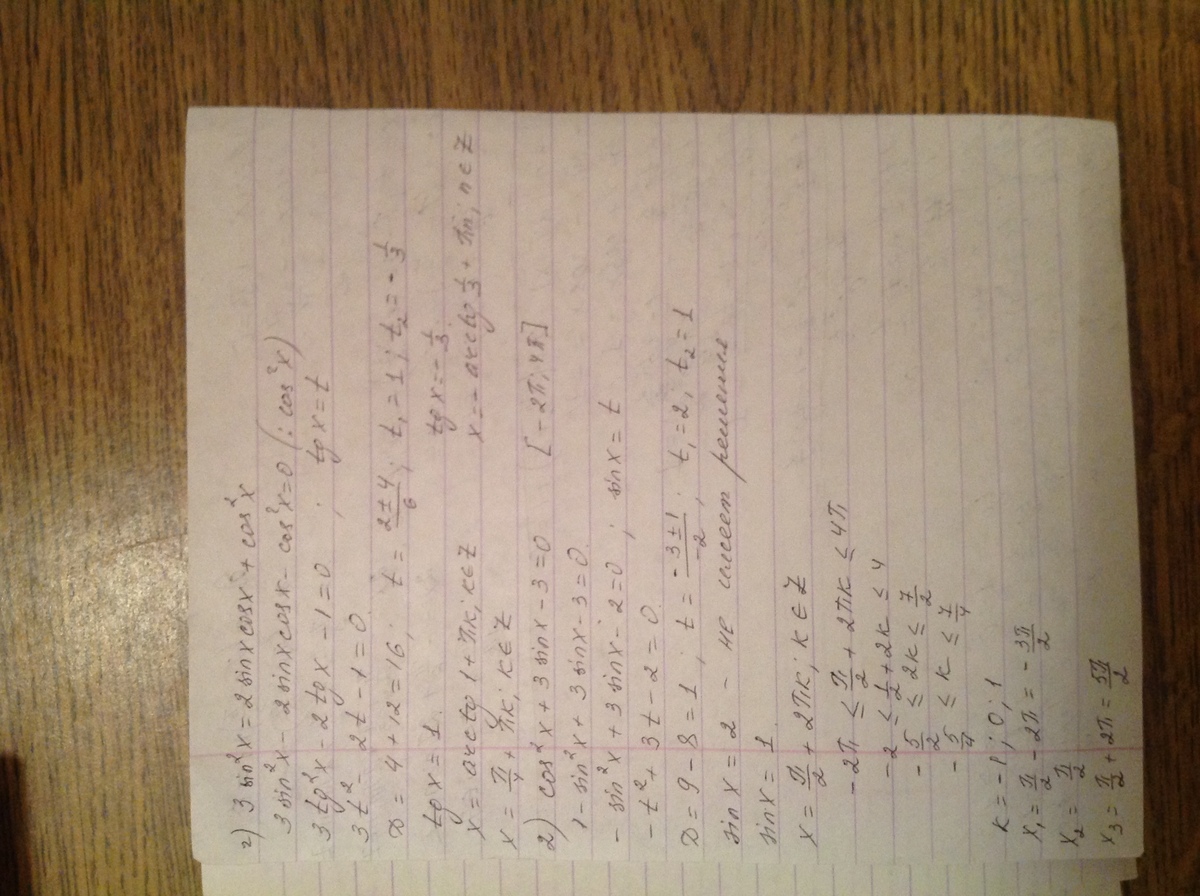 г) 3 sin²x = 2 sinx cosx + cos²x
3 sin²x - 2 sinx cosx - cos²x = 0 (: cos²x)
3 tg²x - 2 tgx - 1 = 0 ; tgx = t
3t² - 2t - 1 = 0
D = 4 + 12 = 16; t = (2 ± 4)/6; t₁ = 1; t₂ = -1/3
tgx = 1 tgx = -1/3
x = arctg 1 + πk; k ∈ Z x = - arctg 1/3 + πn; n ∈ Z
x = π/4 + πk; k ∈ Z
2) cos²x + 3 sinx - 3 = 0 [-2π; 4π]
1 - sin²x + 3 sinx - 3 = 0
- sin²x + 3 sinx - 2 = 0 ; sinx = t
- t² + 3t - 2 = 0
D = 9 - 8 = 1 ; t = (-3 ± 1)/-2; t₁ = 2; t₂ = 1
sinx = 2 - не имеет решения
sinx = 1
x = π/2 + 2πk; k ∈ Z
-2π ≤ π/2 + 2πk ≤ 4π
-2 ≤ 1/2 + 2k ≤ 4
-5/2 ≤ 2k ≤ 7/2
-5/4 ≤ k ≤ 7/4
k = -1; 0; 1
x₁ = π/2 - 2π = -3π/2
x₂ = π/2
x₃ = π/2 + 2π = 5π/2